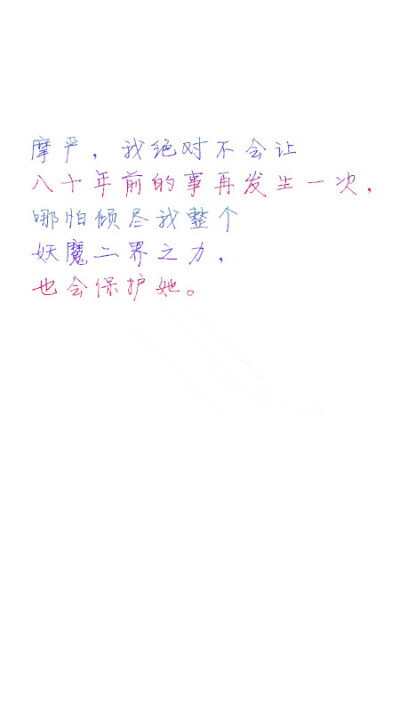 摩严，我绝对不会让
八十年前的事再发生一次，
哪怕倾尽我整个
妖魔二界之力，
也会保护她。